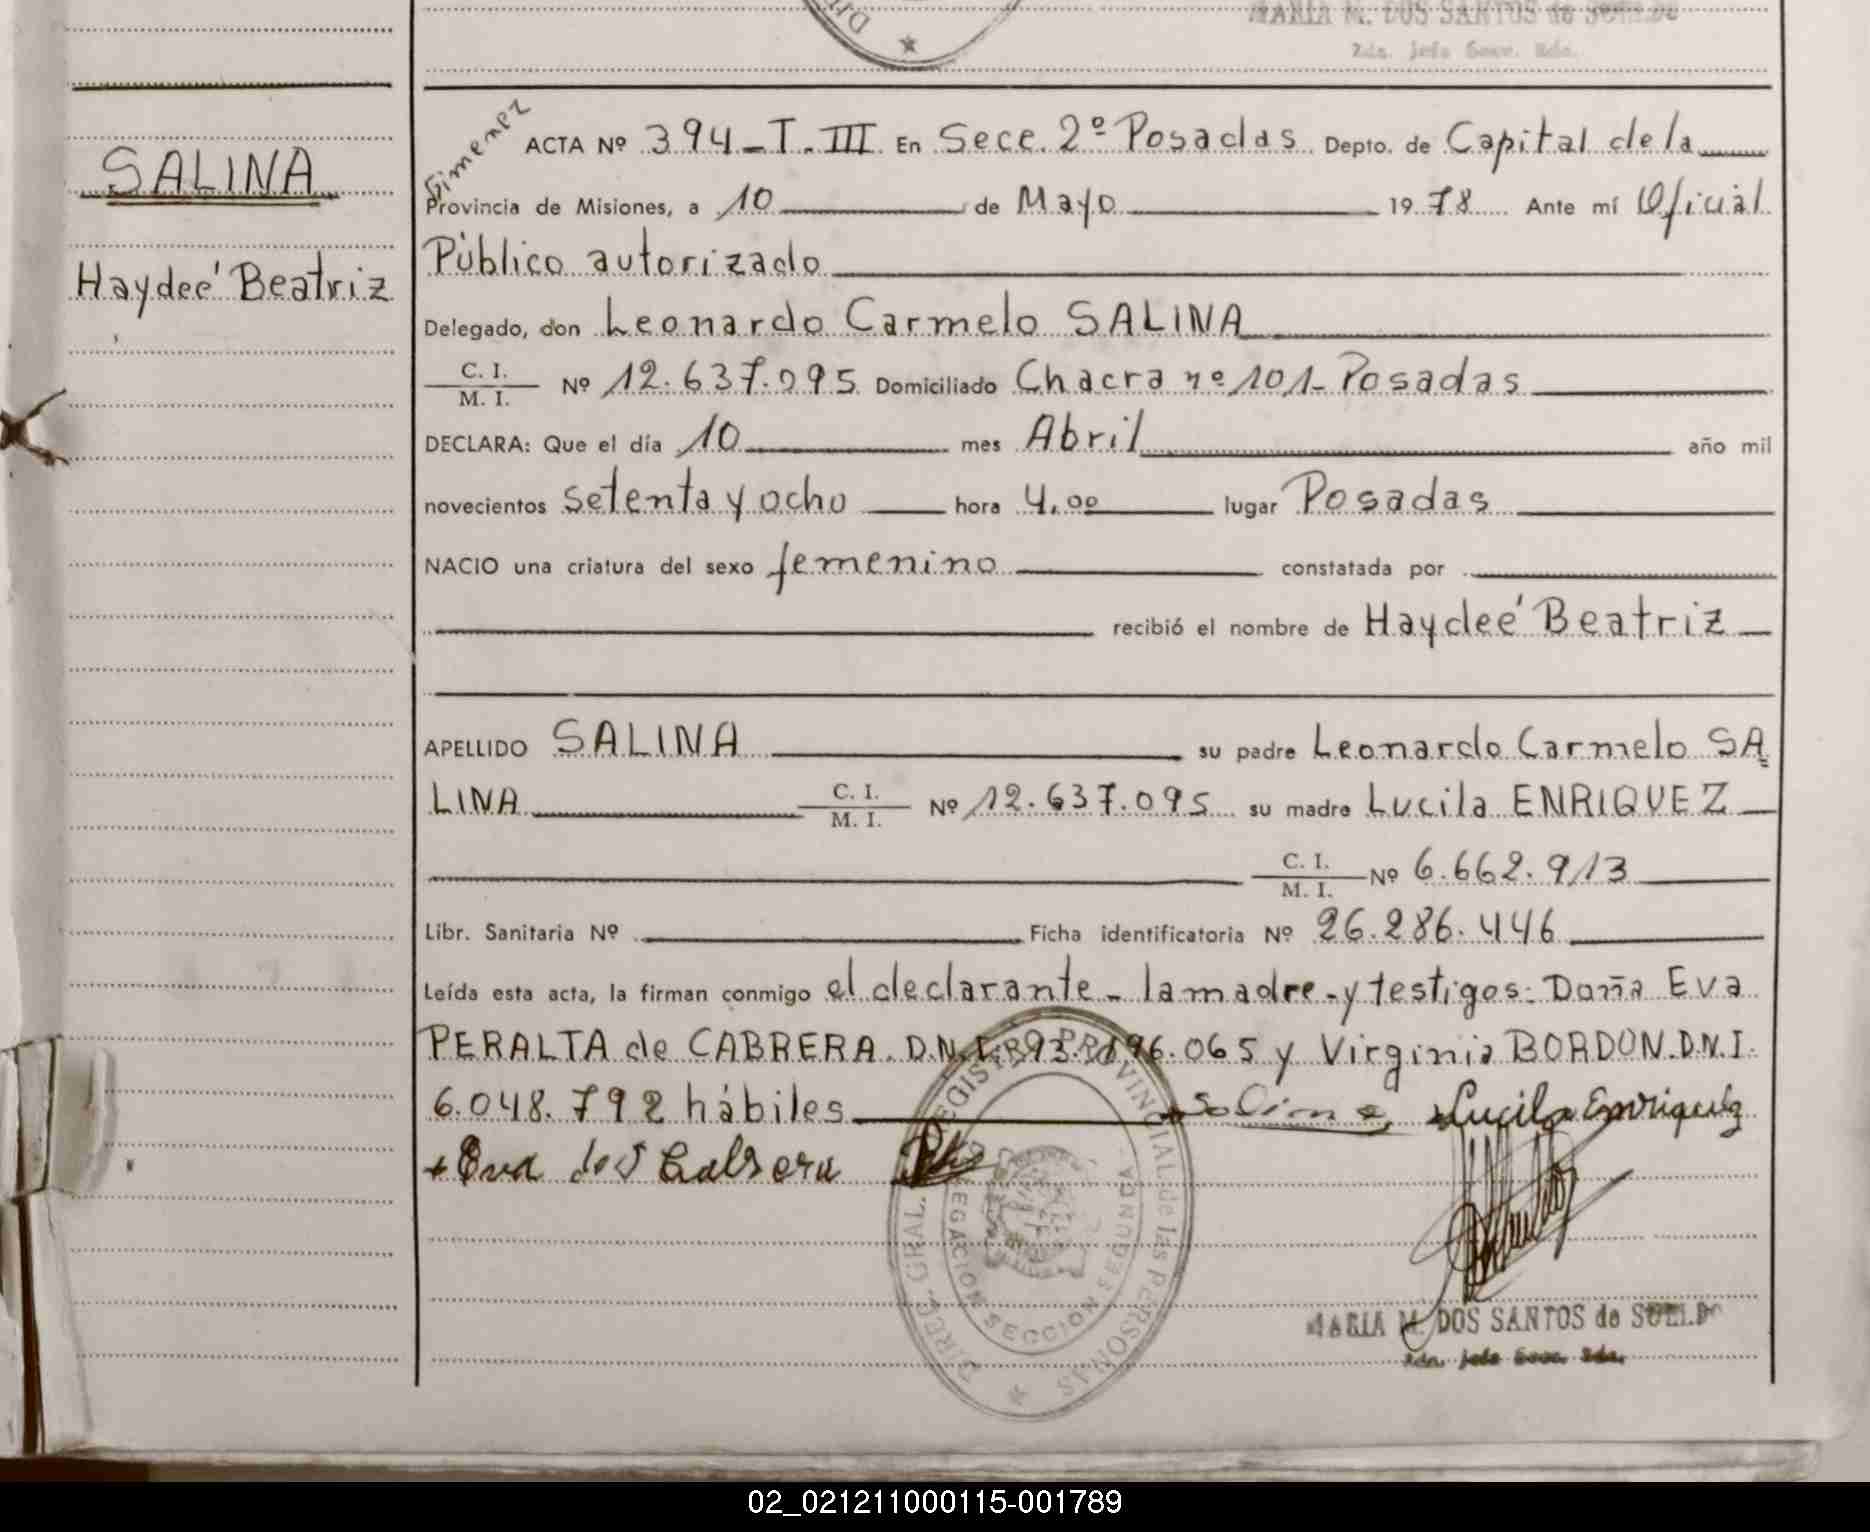 MARIA M. DOS SANTOS de SUELDO
2da. Jefe Secc. 2da.
SALINA
Haydeé Beatriz
Gimenez
ACTA Nº 394-T.III En Secc. 2º Posadas Depto. de Capital de la
Provincia de Misiones, a 10 de Mayo 1978 Ante mí Oficial
Público autorizado
Delegado, don Leonardo Carmelo SALINA
C. I.
M. I. Nº 12.637.095 Domiciliado Chacra nº 101- Posadas
DECLARA: Que el día 10 mes Abril año mil
novecientos setenta y ocho hora 4,00 lugar Posadas
NACIO una criatura del sexo femenino constatada por
recibió el nombre de Haydeé Beatriz
APELLIDO SALINA su padre Leonardo Carmelo SA=
LINA C. I. M. I. Nº 12.637.095 su madre Lucila ENRIQUEZ
C. I. M. I. Nº 6.662.913
Libr. Sanitaria Nº Ficha identificatoria Nº 26.286.446
Leída esta acta, la firman conmigo el declarante - la madre - y testigos: Doña Eva
PERALTA de CABRERA. D.N.I. 93.196.065 y Virginia BORDON. D.N.I.
6.048.792 hábiles
Lucila Enriquez
Eva de Cabrera
DIREC. GRAL. REGISTRO PROVINCIAL de las PERSONAS
DELEGACION SECCION SEGUNDA
MARIA M. DOS SANTOS de SUELDO
2da. Jefe Secc. 2da.
02_021211000115-001789